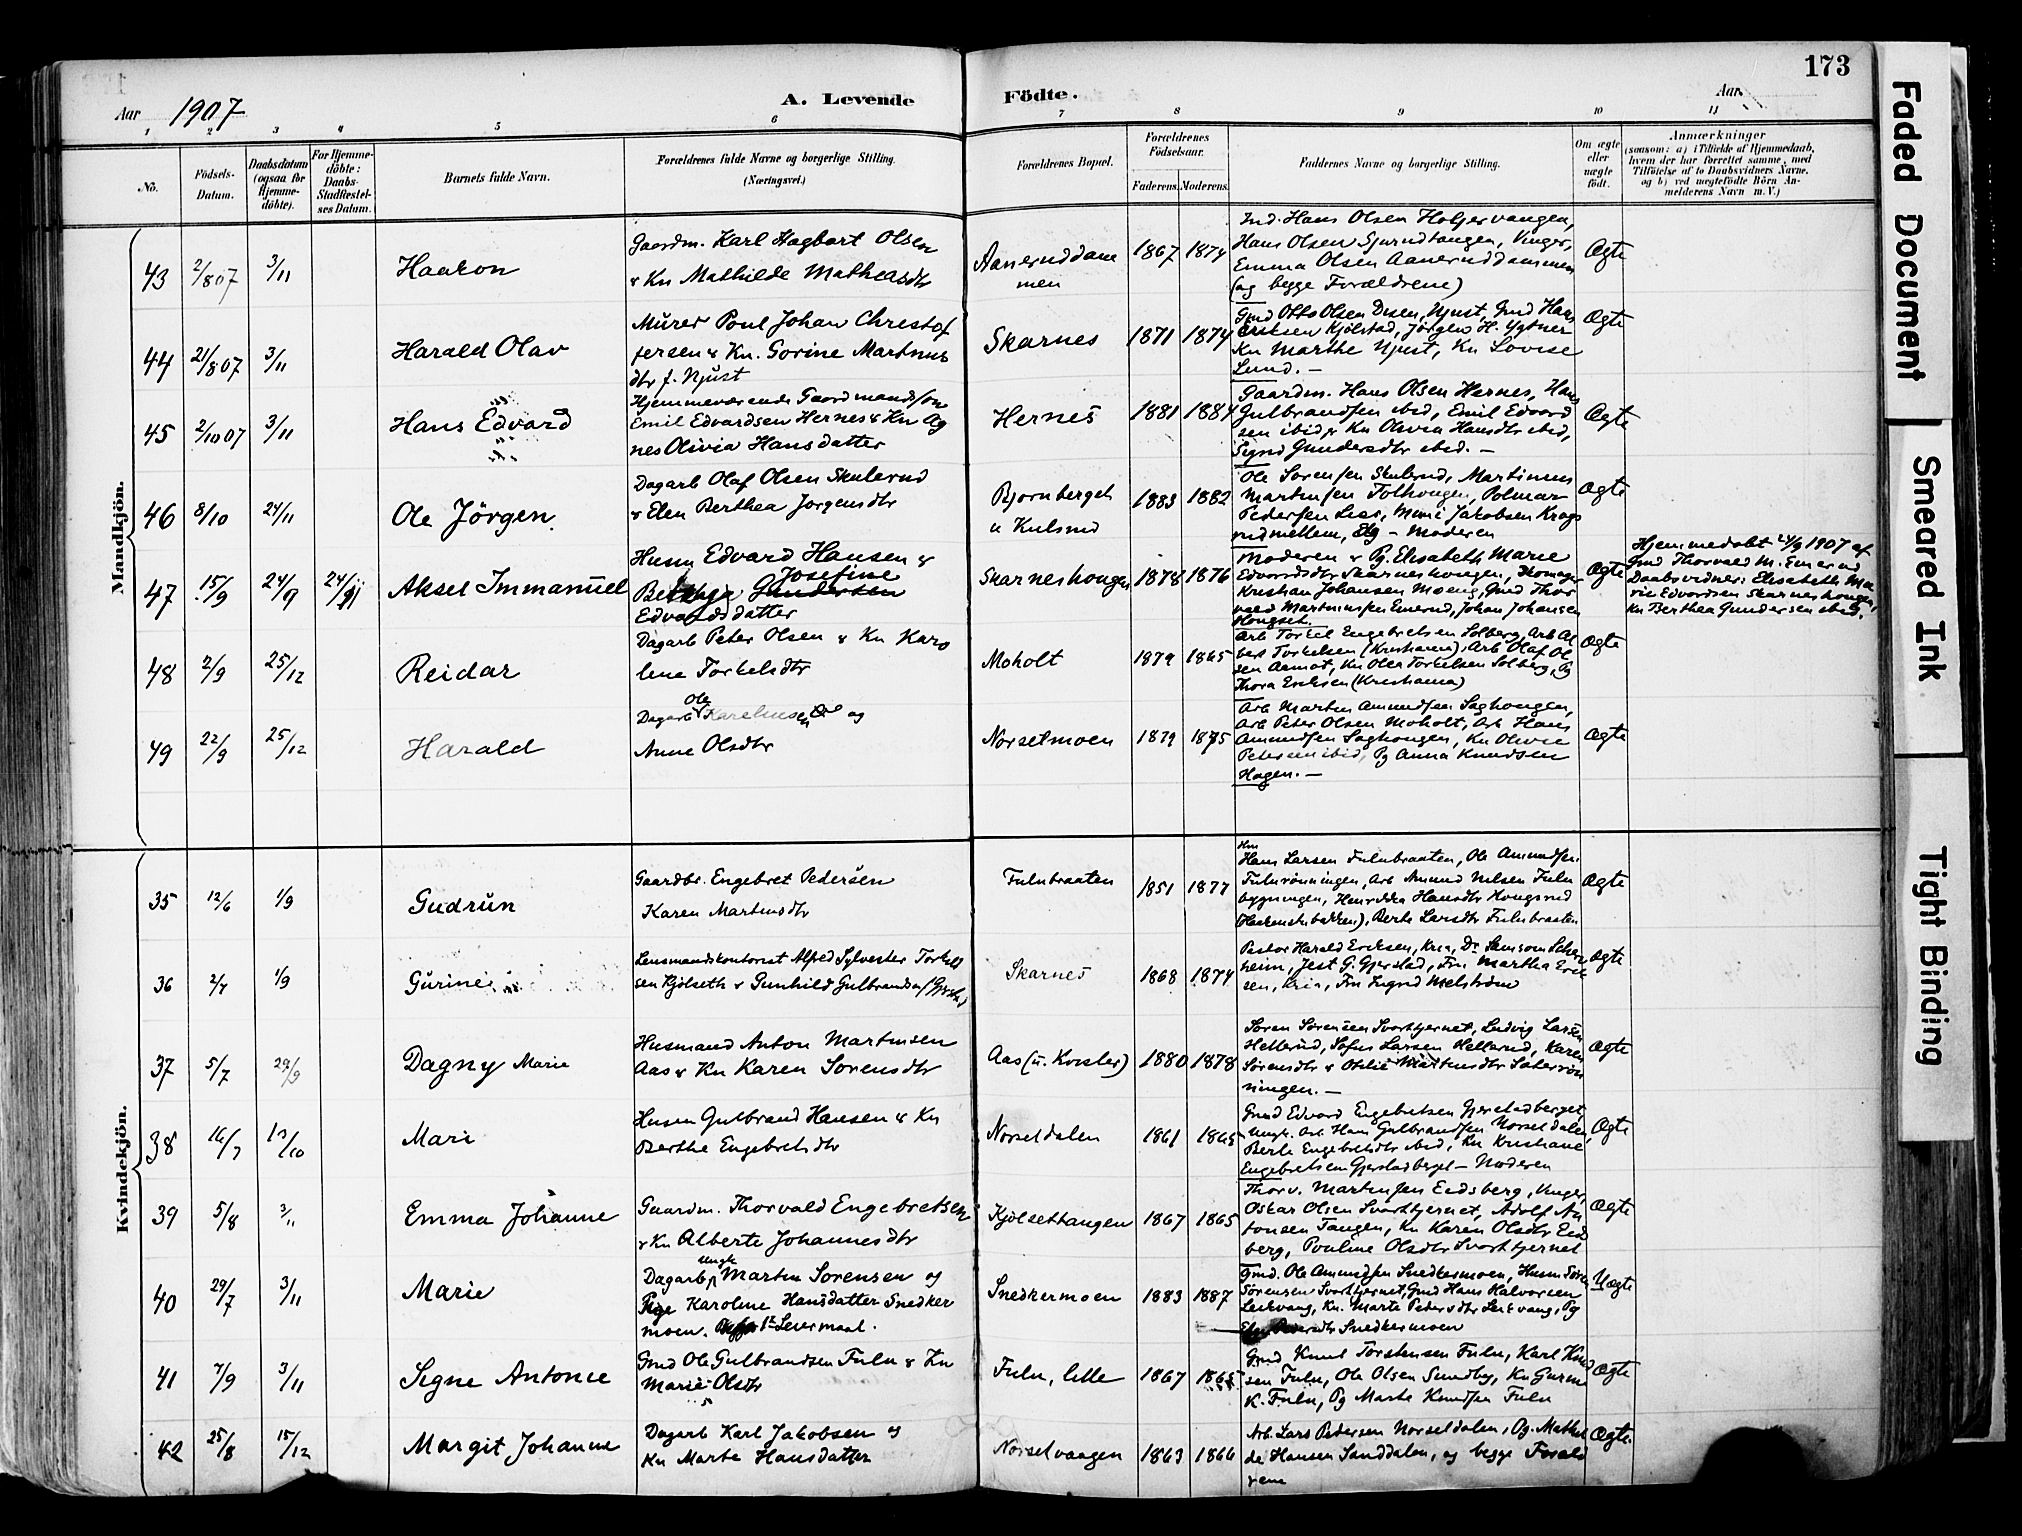 173
Aar 1907
A. Levende Födte.
Aar
1 2 3 4 5 6 7 8 9 10 11
No.
Födsels-Datum.
Daabsdatum (ogsaa for Hjemme-döbte).
For Hjemme-döbte: Daabs-Stadfæstel-ses Datum.
Barnets fulde Navn.
Forældrenes fulde Navne og borgerlige Stilling. (Næringsvei.)
Forældrenes Bopæl.
Forældrenes Födselsaar.
Faderens. Moderens.
Faddernes Navne og borgerlige Stilling.
Om ægte eller uægte födt.
Anmærkninger
(saasom: a) i Tilfælde af Hjemmedaab,
hvem der har forrettet samme, med
Tilföielse af to Daabsvidners Navne,
og b) ved uegtefödte Börn An-
melderens Navn m. V.)
Mandkjön.
43 2/8 07 3/11 Haakon
Gaardm. Karl Hagbart Olsen
& Kn Mathilde Matheasdtr
Aaneruddam
men
1867 1874
Ind. Hans Olsen Holgervangen,
Hans Olsen Sjurudtangen, Vinger,
Emma Olsen Aaneruddammen
(og begge Forældrene)
Ægte
44 21/8 07 3/11 Harald Olav
Murer Poul Johan Christof
fersen & Kn. Gorine Martinus
dtr f. Njust
Skarnes
1871 1874
Gmd Otto Olsen Disen, Njust, Gmd Hans
Eriksen Kjölstad, Jörgen H. Ygtner
Kn Marthe Njust, Kn Lovise
Lund. —
Ægte
45 2/10 07 3/11 Hans Edvard
Hjemmeværende Gaardmandssön
Emil Edvardsen Hernes & Kn Ag
nes Olivia Hansdatter
Hernes
1881 1884
Gaardm. Hans Olsen Hernes, Hans
Gulbrandsen ibid, Emil Edvard
sen ibid, Kn Olivia Hansdtr ibid,
Sigrid Gundersdtr ibid. —
Ægte
46 8/10 24/11 Ole Jörgen
Dagarb Olaf Olsen Skulerud
& Elen Berthea Jorgensdtr
Bjornberget
u Kulsrud
1883 1882
Ole Sorensen Skulerud, Martinus
Martinsen Tolhougen, Polmar
Pedersen Lier, Mimi Jakobsen Krogs
rudmellem, — Moderen
Ægte
47 15/9 24/9 24/11 Aksel Immanuel
Husm Edvard Hansen &
Josefine
Edvardsdatter
Skarneshougen
1878 1876
Moderen & Pg. Elisabeth Marie
Edvardsdtr Skarneshougen,
Kristian Johansen Moeng, Gmd Thor
vald Martinussen Emerud, Johan Johansen
Hougset.
Ægte
Hjemmedöbt 24/9 1907 af
Gmd Thorvald M. Emerud
Daabsvidner: Elisabeth Ma
rie Edvardsen Skarneshougen,
Kn Berthea Gundersen ibid.
48 2/9 25/12 Reidar
Dagarb Peter Olsen & Kn Karo
line Torkelsdtr
Moholt
1879 1865
Arb Torkel Engebretsen Solberg, Arb Al
bert Torkelsen (Kristiania), Arb Olaf Ol
sen Aamot, Kn Olea Torkelsen Solberg, Pg
Thora Eriksen (Kristiania)
Ægte
49 22/9 25/12 Harald
Ole
Dagarb Kareliusen og
Anne Olsdtr
Norsetmoen
1879 1875
Arb Martin Amundsen Saghougen,
Arb Peter Olsen Moholt, Arb Hans
Amundsen Saghougen, Kn Olivie
Petersen ibid, Pg Anna Knudsen
Hagen. —
Ægte
Kvindekjön.
35 12/6 1/9 Gudrun
Gaardbr. Engebret Pedersen
Karen Martinsdtr
Fulubraaten
1851 1877
Hm
Hans Larsen Fulubraaten, Ole Amundsen
Fulurönningen, Arb Amund Nilsen Fulu
bygningen, Henrikka Hansdtr Hougsrud
, Berte Larsdtr Fulubraaten
Ægte
36 2/7 1/9 Gurine
Lensmandskontorist Alfred Sylvester Torkild
sen Kjölseth & Gunhild Gulbrandsen
Skarnes
1868 1874
Pastor Harald Eriksen, Kria, Dr Samson Schar
heim, Jest G. Gjerstad, Fru Martha Erik
sen, Kria, Frn Ingrid Melström
Ægte
37 5/7 29/9 Dagny Marie
Husmand Anton Martinsen
Aas & Kn Karen Sorensdtr
Aas (u. Korsler)
1880 1878
Soren Sörensen Svartkjernet, Ludvig Larsen
Hellerud, Sofus Larsen Hellerud, Karen
Sörensdtr & Otilie Martinsdtr Saterrön
ningen. —
Ægte
38 16/7 13/10 Mari
Husm Gulbrand Hansen & Kn
Berthe Engebretsdtr
Norsetdalen
1861 1865
Gmd Edvard Engebretsen Gjerstadberget,
Ungk. Arb. Hans Gulbrandsen Norsetdalen,
Berte Engebretsdtr ibid, Kn Kristiane
Engebretsen Gjerstadberget — Moderen
Ægte
39 5/8 3/11 Emma Johanne
Gaardm. Thorvald Engebretsen
& Kn Alberte Johannesdtr
Kjölsettangen
1867 1865
Thorv. Martinsen Eidsberg, Vinger,
Oskar Olsen Svartkjernet, Adolf An
tonsen Tangen, Kn Karen Olsdtr Eid
berg, Pouline Olsdtr Svartkjernet
Ægte
40 29/7 3/11 Marie
Ungk
Dagarb Martin Sorensen og
Pige Karoline Hansdatter Snedker
moen. 1ste Leiermaal.
Snedkermoen
1883 1887
Gmd. Ole Amundsen Snedkermoen, Husm Sören
Sörensen Svartkjernet, Gmd Hans Halvorsen
Leikvang, Kn. Marte Pedersdtr Leikvang, Pg
Pedersdtr Snedkermoen
Uægte
41 7/9 3/11 Signe Antonie
Gmd Ole Gulbrandsen Fulu & Kn
Marie Olsdtr
Fulu, lille
1867 1865
Gmd Knut Torstensen Fulu, Karl Knud
sen Fulu, Ole Olsen Sundby, Kn Gurine
K. Fulu, Pg Marte Knudsen Fulu
Ægte
42 25/8 15/12 Margit Johanne
Dagarb Karl Jakobsen og
Kn Marte Hansdatter
Norsetvangen
1863 1866
Arb. Lars Pedersen Norsetdalen, Pg. Mathil
de Hansen Sanddalen, og begge Foræld
rene
Ægte.
Faded Document
Smeared Ink
Tight Binding